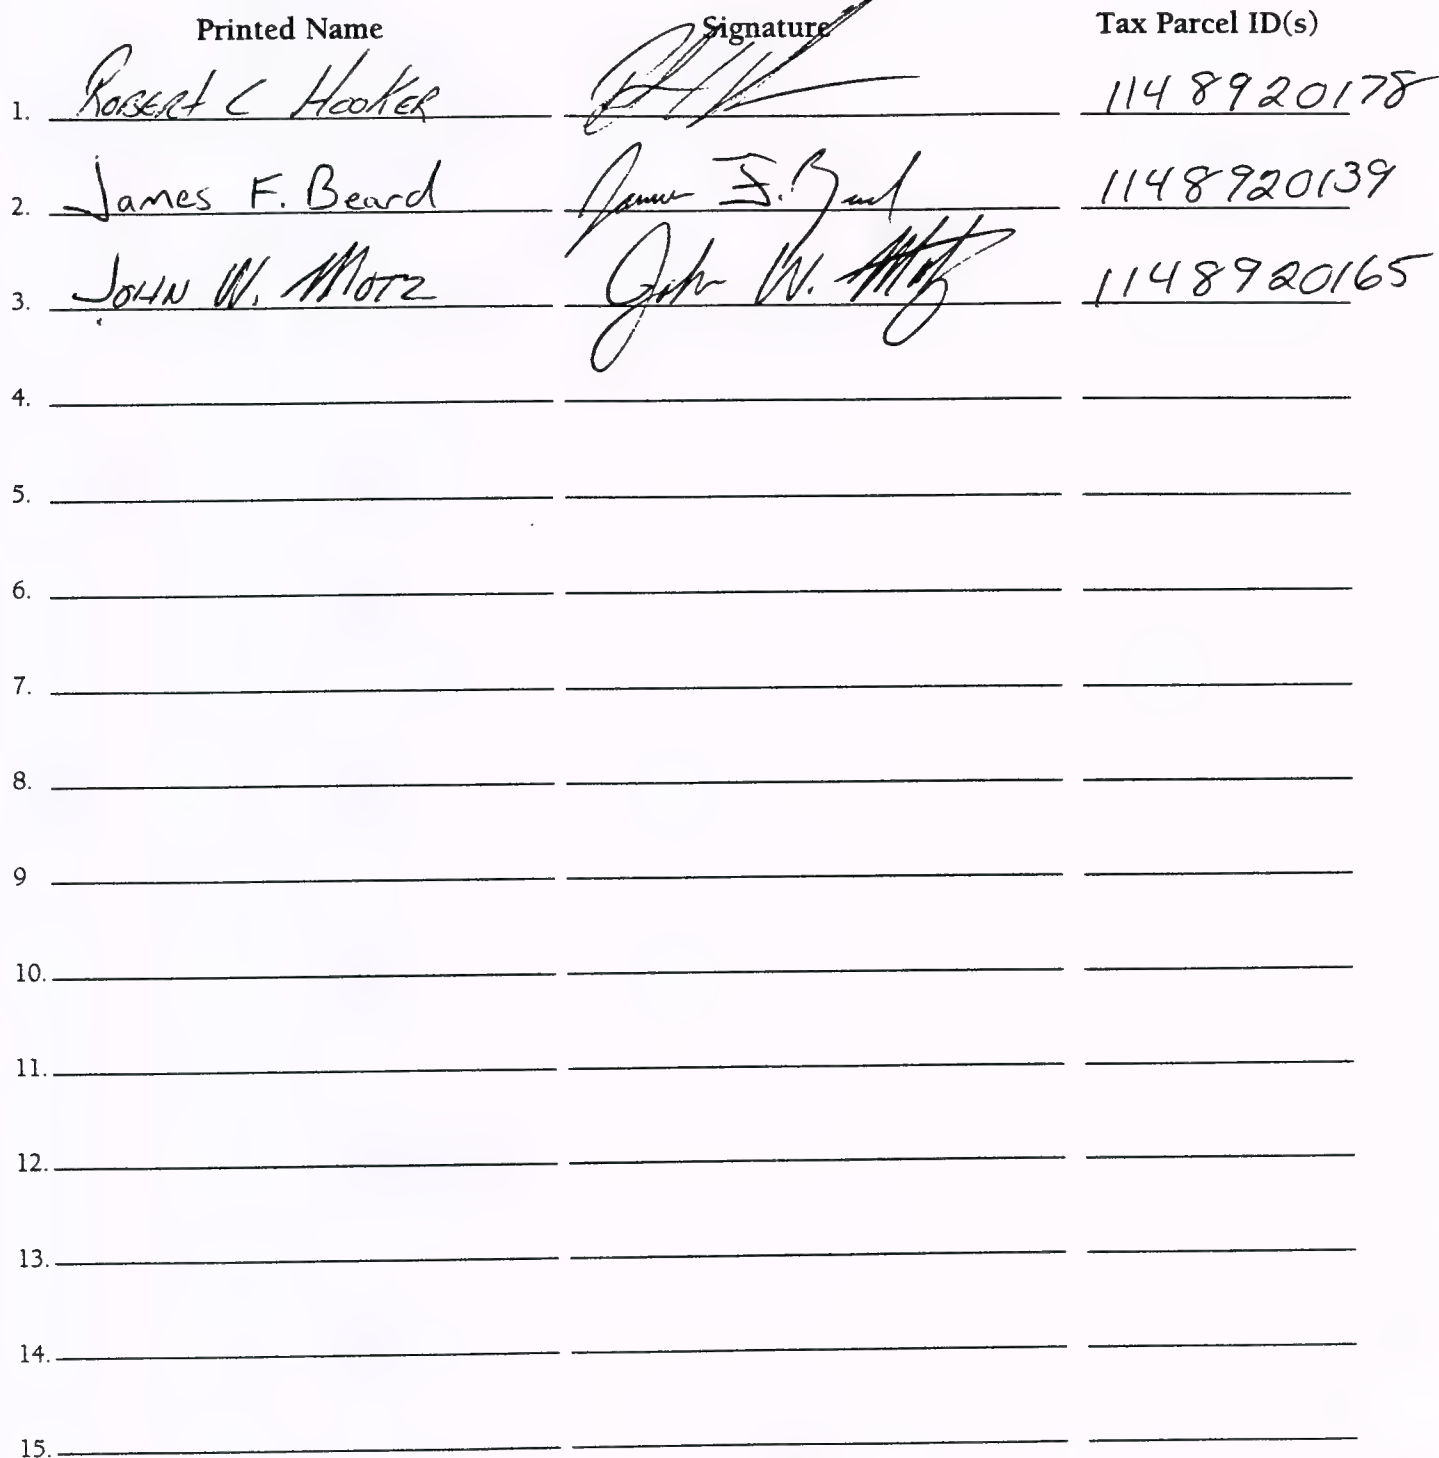 Printed Name Signature Tax Parcel ID(s)
1. ROBERT C HOOKER 1148920178
2. James F. Beard James F. Beard 1148920139
3. JOHN W. MOTZ John W. Motz 1148920165
4.
5.
6.
7.
8.
9
10.
11.
12.
13.
14.
15.